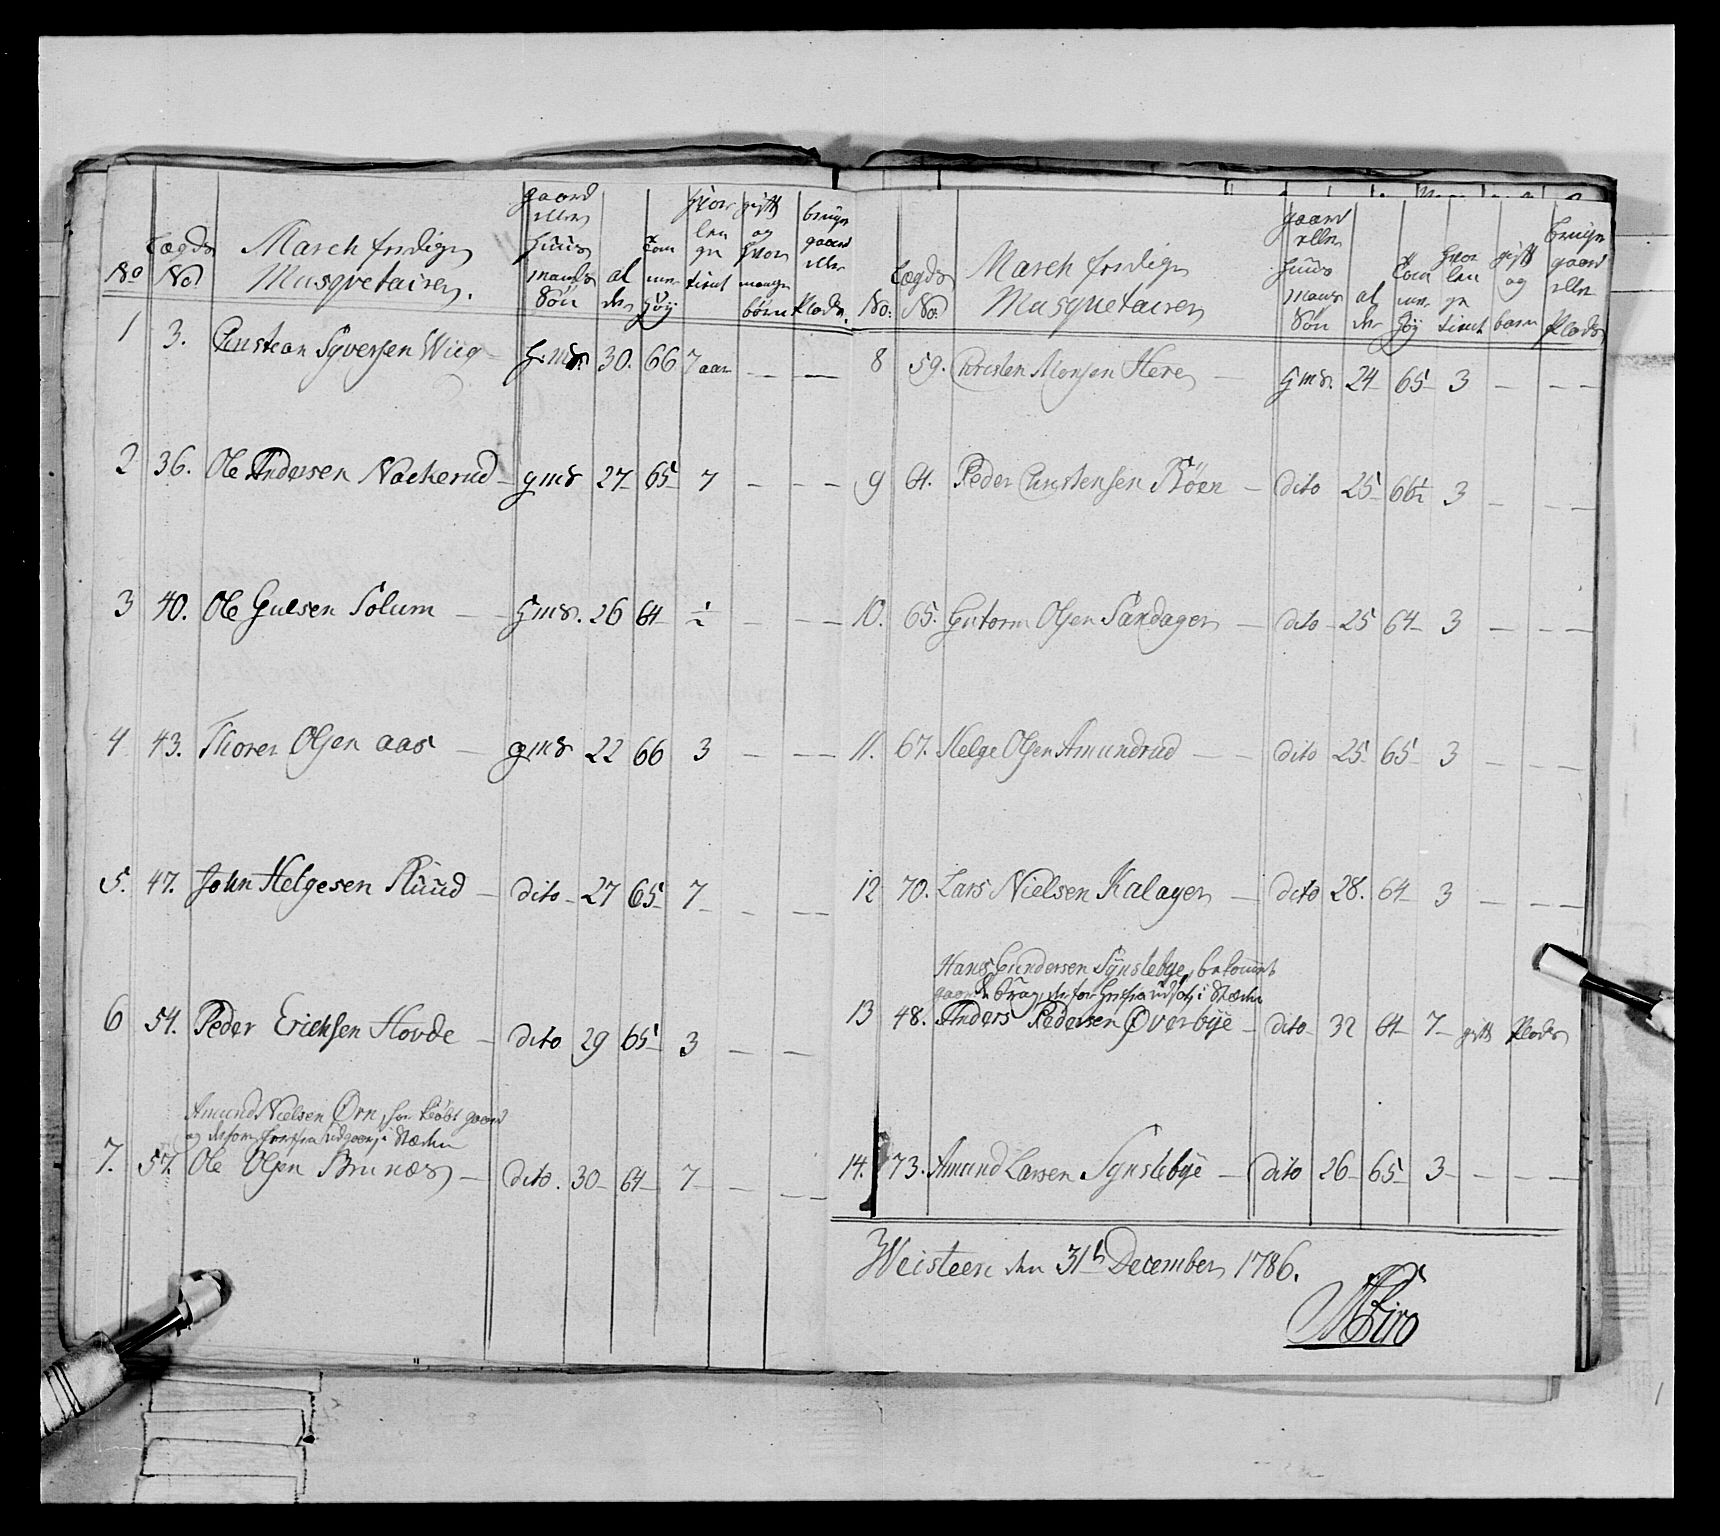 No
Lægds No
March ferdige Musquetairer.
gaard eller Huus mands Søn
al der
Tom mer Høy
Hvor len ge tient
gift og Hvor mange børn
bruger gaard eller Plads.
1 3. Christean Syversen Wiig Hmds. 30. 66 7 aar — —
2 36. Ole Andersen Nackerud — gmds 27 65 7 — — —
3 40. Ole Gulsen Solum — Hmds. 26 64 ½ — — —
4 43. Thorer Olsen Aas — gmds 22 66 3 — — —
5. 47. John Helgesen Ruud — dito 27 65 7 — — —
6 54. Peder Erichsen Hovde — dito 29 65 3 — —
Amund Nielsen Ørn, har kiøbt gaard
og derfor herfra udgaar, i Stæden
7. 57. Ole Olsen Brunæs — dito. 30 64 7 — — —
No:
Lægds No:
March ferdige Musquetairer
gaard eller Huus mans Søn
al der
Tom mer Høy
Hvor len ge tient
gift og børn
bruger gaard eller Plads
8 59. Christen Monsen Here — Hmds. 24 65 3 — — —
9 64. Peder Christensen Røen — dito 25 66½ 3 — — —
10. 65. Gutorm Olsen Sandager — dito 25 64 3 — — —
11. 67. Helge Olsen Amundrud — — dito 25 65 3 — — —
12 70. Lars Nielsen Kalager — dito 28. 64 3 — — —
Hans Gundersen Synslebye, bekommet
gaard brug, derfor herfra udsat, i Stæden
13 48. Anders Pedersen Øverbye — dito 32 64 7 gift Plads
14. 73. Amund Larsen Synslebye — dito 26 65 3 — — —
Weisteen den 31th December 1786.